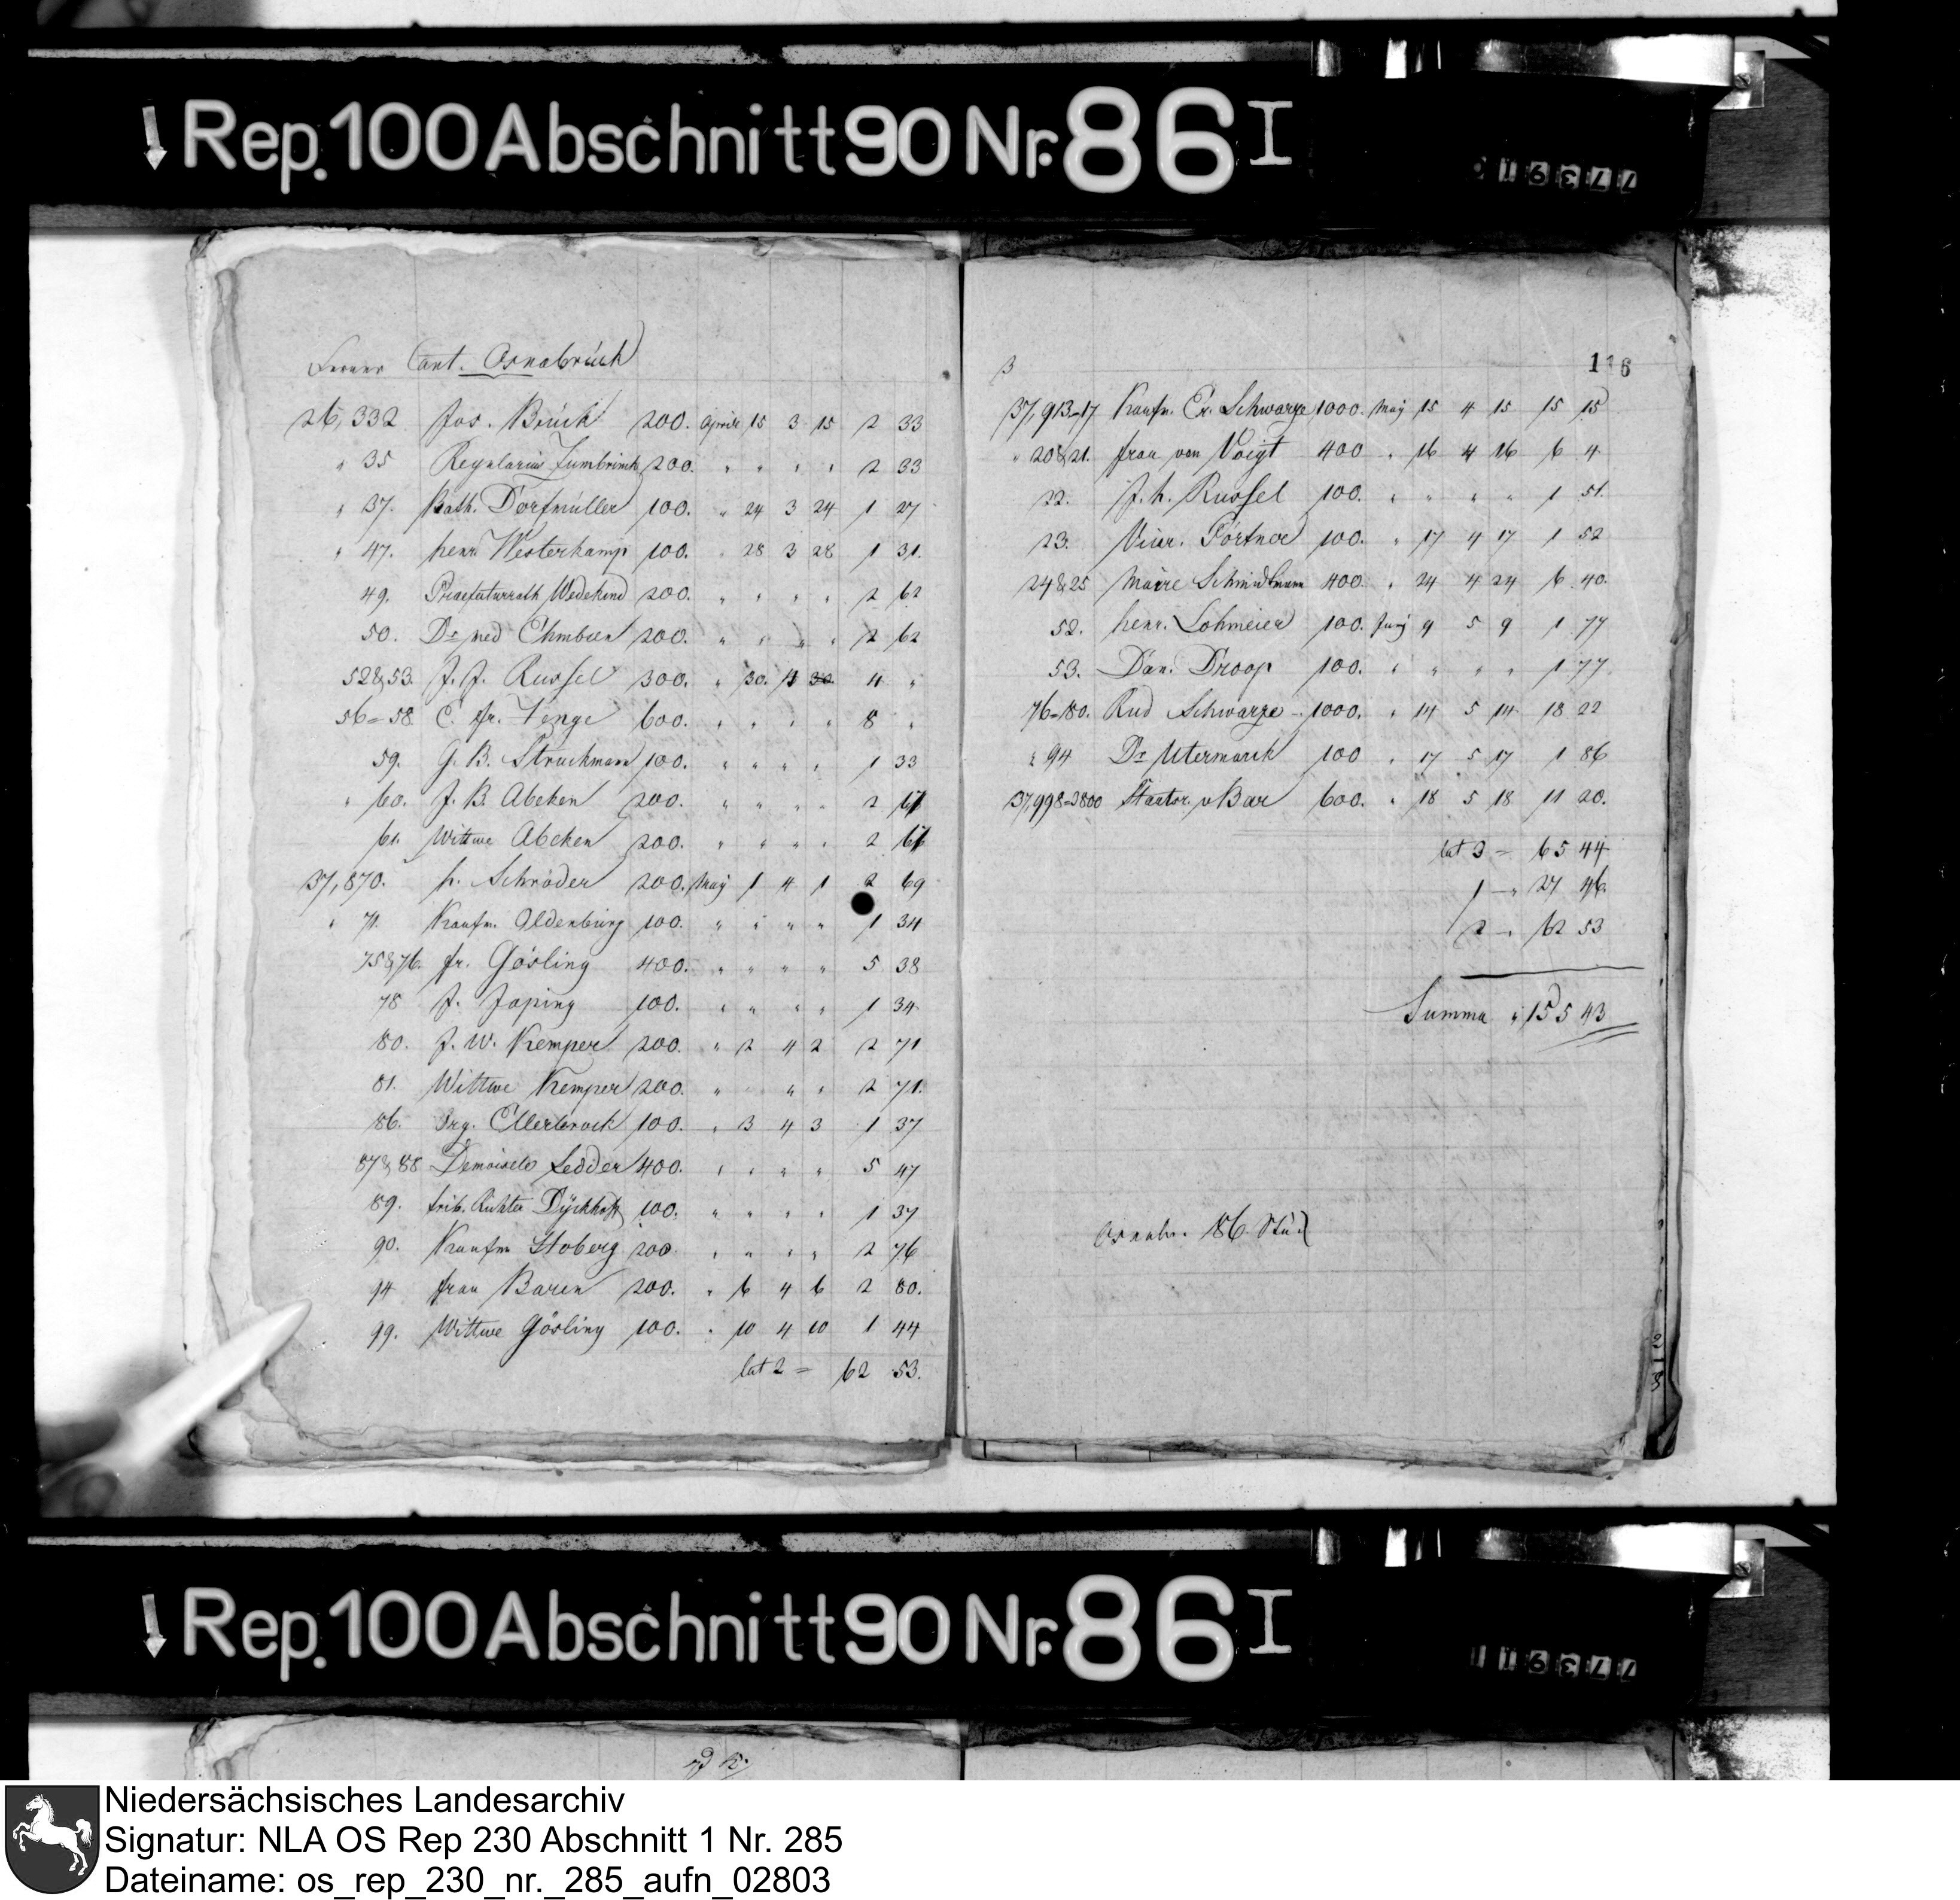 Rep. 100 Abschnitt 90 Nr. 86 I
Ferner Cant. Osnabrück
26,332 Jos. Brück 200. Aprill 15 3 15 2 33
" 35 Regularius Zumbrinck 200. " " " " 2 33
" 37. Kath. Dorfmüller 100. " 24 3 24 1 27
" 47. henr Westerkamp 100. " 28 3 28 1 31.
49. Praefuturrath Wedekind 200. " " " " 2 62
50. Dr med 200. " " " " 2 62
52&53. J. J. Russel 300. " 30. 3 30. 4 "
56=58. C. fr. Tenge 600. " " " " 8 "
59. G. B. Struckmann 100. " " " " 1 33
" 60. J. B. Abeken 200. " " " " 2 67
61. Wittwe Abeken 200. " " " " 2 67
37,870. h. Schröder 200. May 1 4 1 2 69
" 71. Kaufm. Oldenburg 100. " " " " 1 34
75&76. fr. Gösling 400. " " " " 5 38
78 J. Japing 100. " " " " 1 34.
80. J. W. Kemper 200. " 2 4 2 2 71
81. Wittwe Kemper 200. " " " 2 71.
86. Org. Ellerbrock 100. " 3 4 3 1 37
87&88 Demoiselle Ledder 400. " " " " 5 47
89. trib. Richter Dyckhoff 100. " " " " 1 37
90. Kaufm Stoberg 200. " " " " 2 76
94 frau Baren 200. " 6 4 6 2 80.
99. Wittwe Gösling 100. " 10 4 10 1 44
lat 2 = 62 53.
3
116
37,913=17 Kaufm. Cr. Schwarze 1000. May 15 4 15 15 15
" 20&21. frau von Voigt 400 " 16 4 16 6 4
22. J. h. Russel 100. " " " " 1 51.
23. Vicar. Pörtner 100. " 17 4 17 1 52
24&25 Maire Schmidtmann 400. " 24 4 24 6 40.
52. henr. Lohmeier 100. Juny 9 5 9 1 77
53. Dan. Droop 100. " " " " 1 77.
76=80. Rud Schwarze 1000. " 14 5 14 18 22
" 94 Dr Utermarck 100 " 17 5 17 1 86
37,998=3800 v Bar 600. " 18 5 18 11 20.
lat 3 = 65 44
1 - 27 46.
2 - 62 53
Summa " 155 43
Osnabr. 186. Stück
Rep. 100 Abschnitt 90 Nr. 86 I
Niedersächsisches Landesarchiv
Signatur: NLA OS Rep 230 Abschnitt 1 Nr. 285
Dateiname: os_rep_230_nr._285_aufn_02803